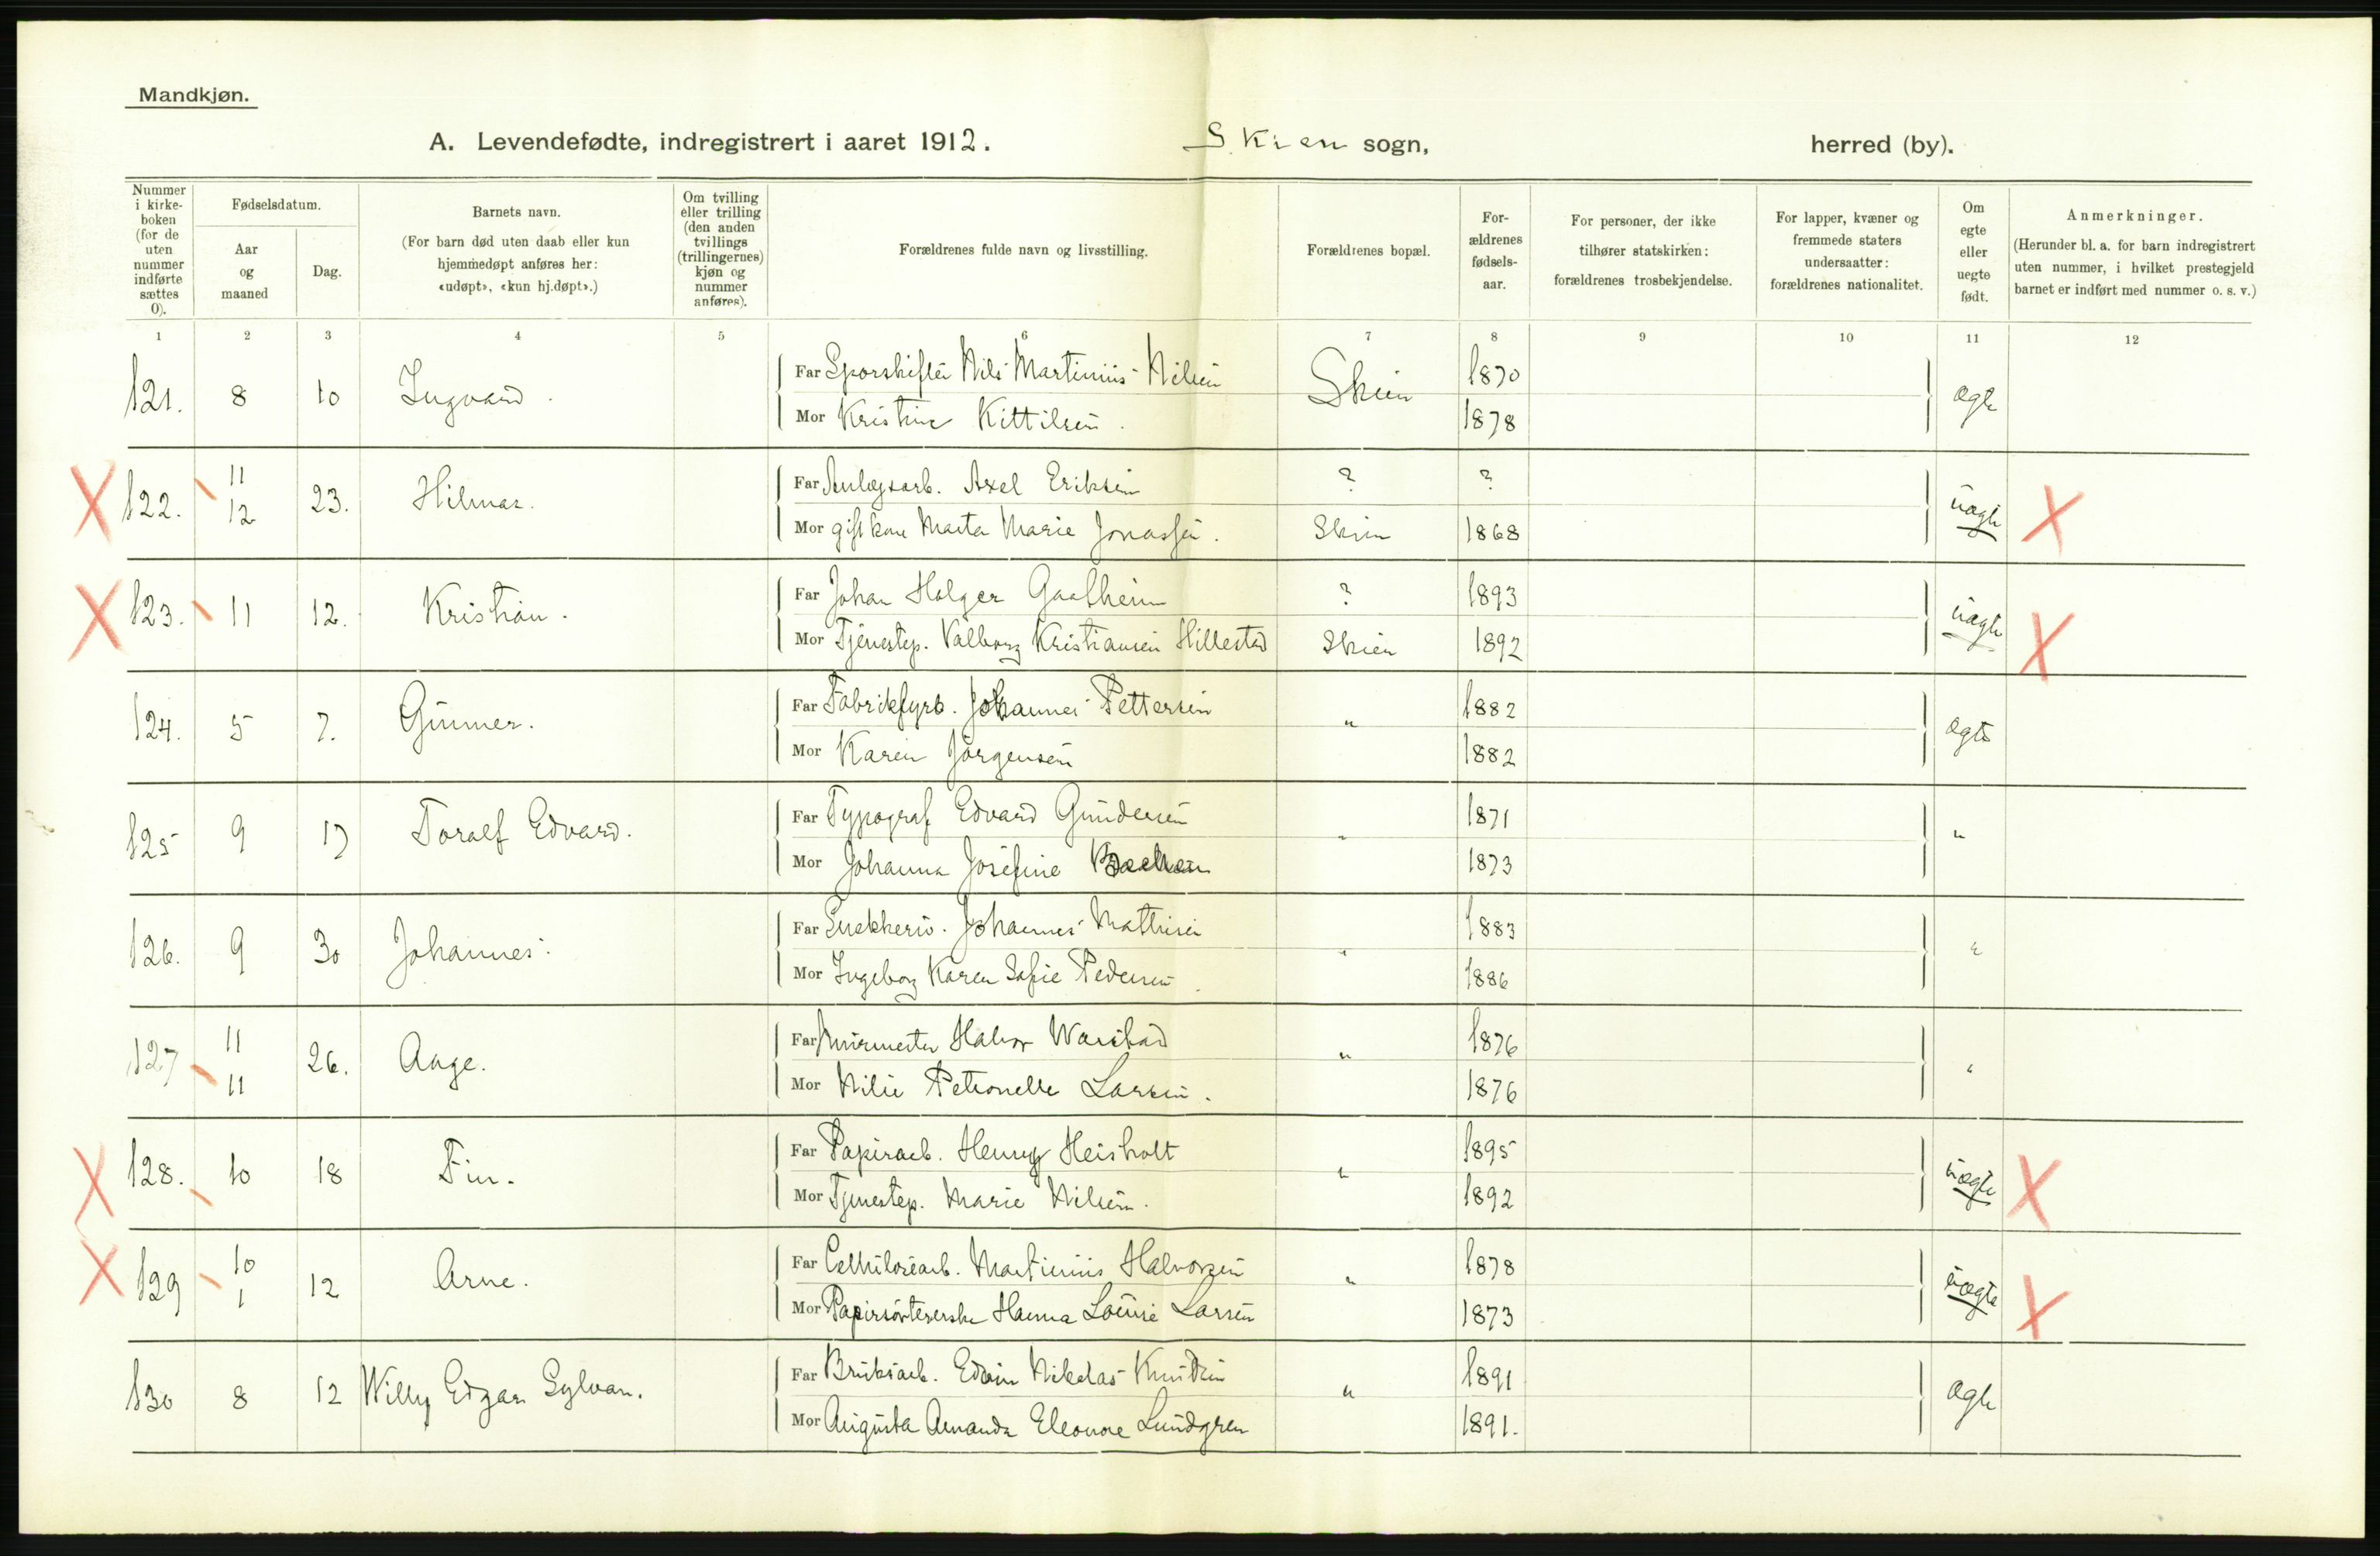 Mandkjøn.
A. Levendefødte, indregistrert i aaret 1912. Skien sogn, herred (by).
Nummer i kirkeboken (for de uten nummer indførte sættes 0).
Fødselsdatum.
Aar og maaned
Dag.
Barnets navn.
(For barn død uten daab eller kun hjemmedøpt anføres her: «udøpt», «kun hj.døpt».)
Om tvilling eller trilling (den anden tvillings (trillingernes) kjøn og nummer anføres).
Forældrenes fulde navn og livsstilling.
Forældrenes bopæl.
Forældrenes fødselsaar.
For personer, der ikke tilhører statskirken: forældrenes trosbekjendelse.
For lapper, kvæner og fremmede staters undersaatter: forældrenes nationalitet.
Om egte eller uegte født.
Anmerkninger.
(Herunder bl. a. for barn indregistrert uten nummer, i hvilket prestegjeld barnet er indført med nummer o. s. v.)
1 2 3 4 5 6 7 8 9 10 11 12
121. 8 10 Ingvard. Far Sporskifter Nils Martinius Nilsen Skien 1870 ægte
Mor Kristine Kittilsen. 1878
X 122. 11 12 23. Hilmar. Far Anlægsarb. Axel Eriksen ? ? uægte X
Mor gift kone Marta Marie Jonassen. Skien 1868
X 123. 11 12. Kristian. Far Johan Holger Gaatheim ? 1893 uægte X
Mor Tjenestep. Valborg Kristiansen Hillestad Skien 1892
124. 5 7. Gunner. Far Fabrikfyrb. Johannes Pettersen " 1882 ægte
Mor Karen Jørgensen 1882
125 9 17 Toralf Edvard. Far Typograf Edvard Gundersen " 1871 "
Mor Johanna Josefine 1873
126. 9 30 Johannes. Far Johannes Mathisen " 1883 "
Mor Ingeborg Karen Sofie Pedersen. 1886
127 11 11 26. Aage. Far Murmester Halvor " 1876 "
Mor Nilie Petronelle Larsen. 1876
X 128. 10 18 Fin. Far Papirarb. Henry Heisholt " 1895 uægte X
Mor Tjenestep. Marie Nilsen. 1892
X 129 10 1 12 Arne. Far Cellulosearb. Martinius Halvorsen " 1878 uægte X
Mor Papirsortererske Hanna Louise Larsen 1873
130 8 12 Willy Edgar Sylvan. Far Bruksarb. Edvin Nikolas Knudsen " 1891 ægte
Mor Augusta Amanda Eleonore Lundgren 1891.